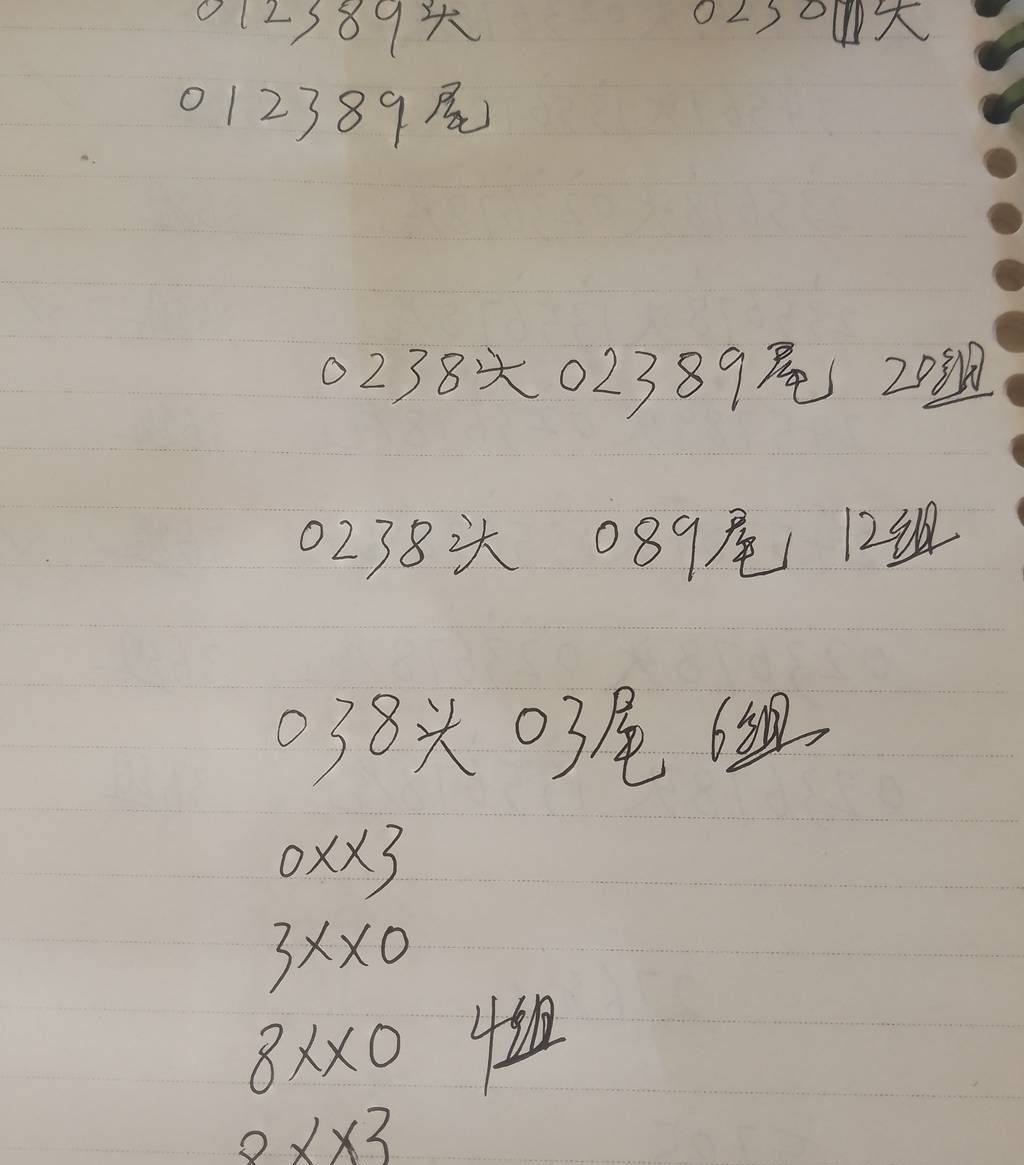 012389头 0238头
012389尾
0238头 02389尾 20组
0238头 089尾 12组
038头 03尾 6组
0XX3
3XX0
8XX0 4组
8XX3